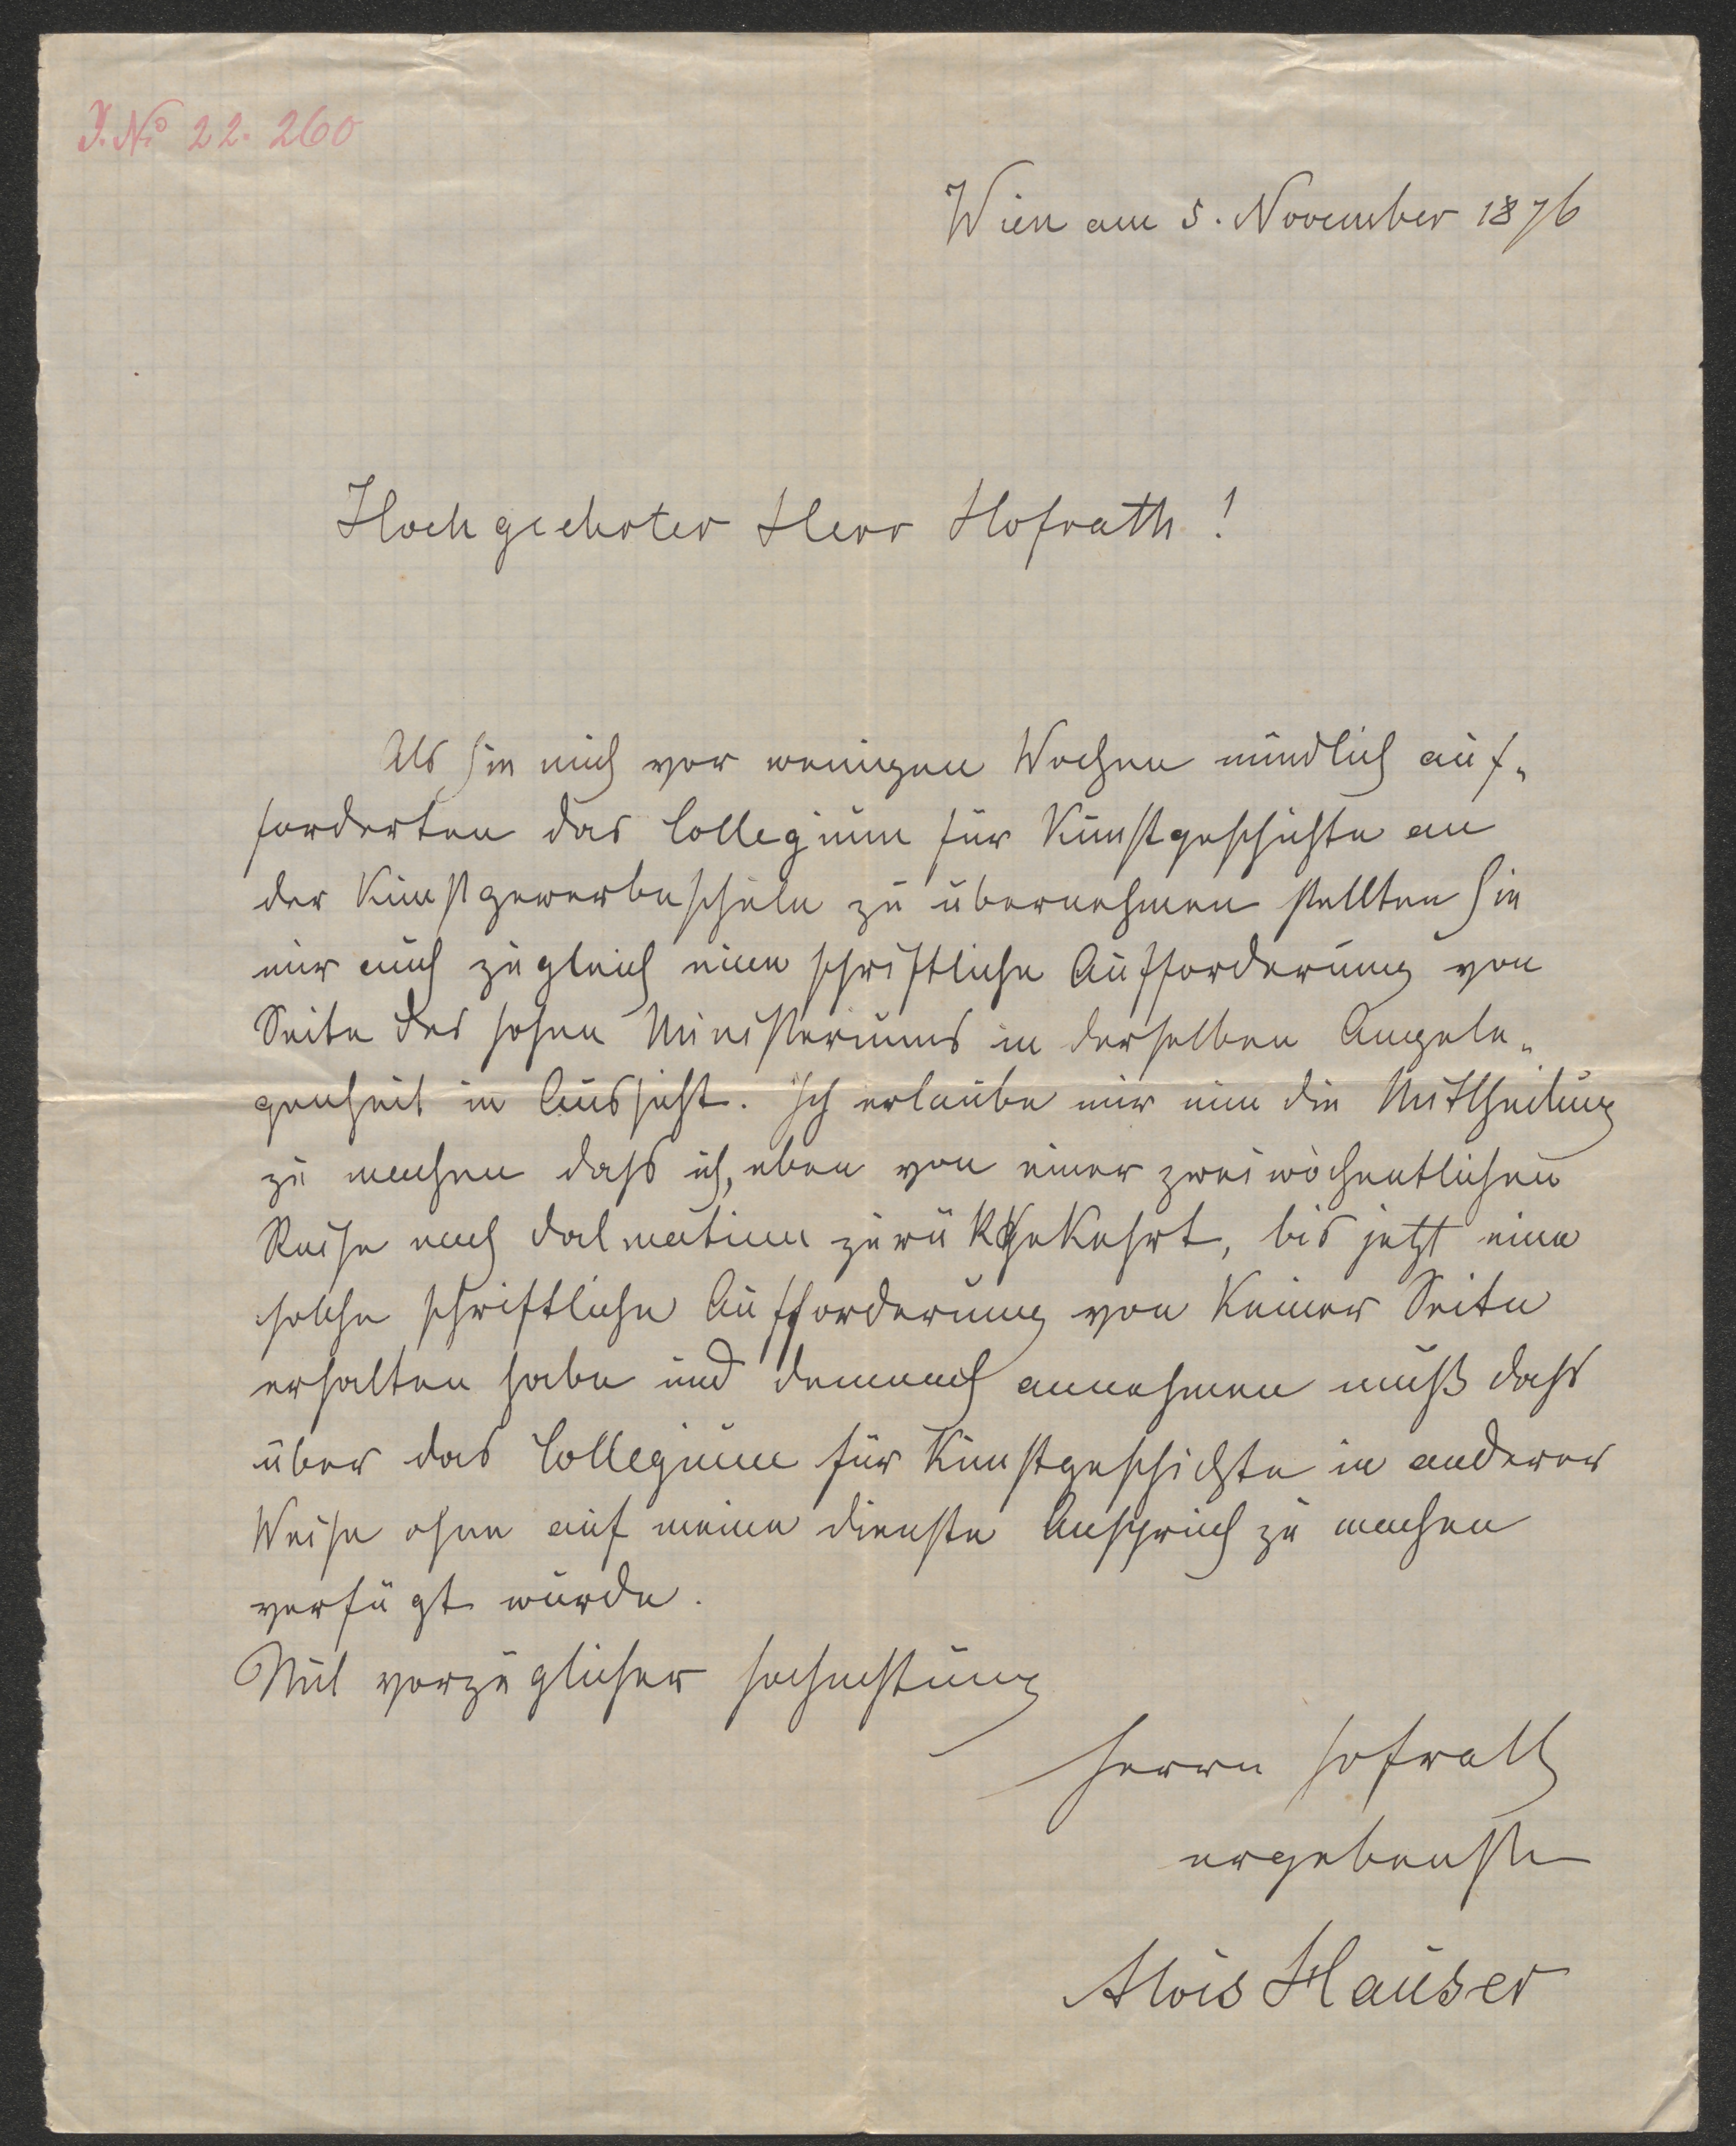 J. No 22.260
Wien am 5. November 1876
Hochgeehrter Herr Hofrath!
Als Sie mich vor wenigen Wochen mündlich auf-
forderten das Collegium für Kunstgeschichte an
der Kunstgewerbeschule zu übernehmen stellten Sie
mir auch zugleich eine schriftliche Aufforderung von
Seite des hohen Ministeriums in derselben Angele-
genheit in Aussicht. Ich erlaube mir nun die Mittheilung
zu machen dass ich, eben von einer zweiwöchentlichen
Reise nach Dalmatien zurükgekehrt, bis jetzt eine
solche schriftliche Aufforderung von keiner Seite
erhalten habe und demnach annehmen muß dass
über das Collegium für Kunstgeschichte in anderer
Weise ohne auf meine Dienste Anspruch zu machen
verfügt wurde.
Mit vorzüglicher Hochachtung
Herrn Hofrath
ergebenster
Alois Hauser